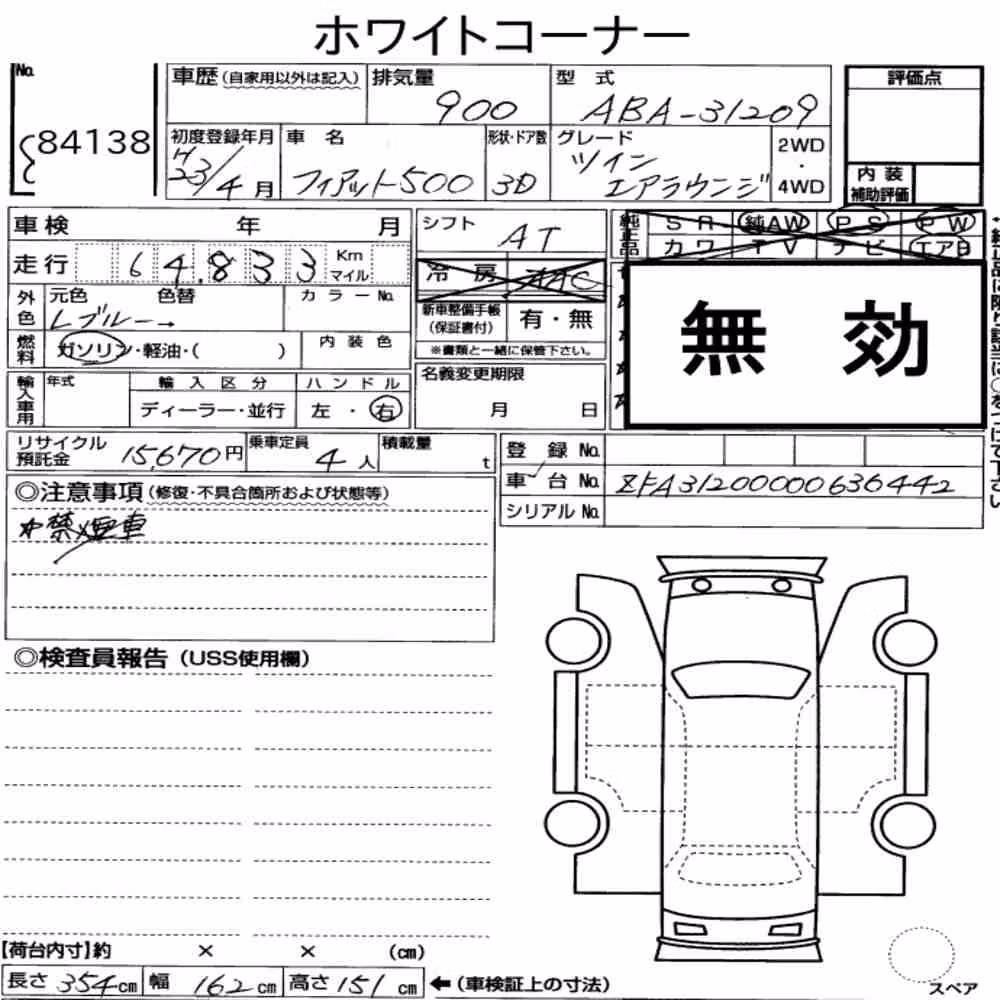 ホワイトコーナー
No. 84138
車歴 (自家用以外は記入)
排気量 900
型式 ABA-31209
評価点
初度登録年月 H23/4月
車名 フィアット500
形状・ドア数 3D
グレード ツイン エアラウンジ
2WD・4WD
内装補助評価
車検 年 月
シフト AT
純正品 SR 純AW PS PW
カワ TV ナビ エアB
走行 64,833 Km マイル
冷房 AAC
無効
外色 元色 色替 カラーNo.
Lブルー→
新車整備手帳(保証書付) 有・無
※書類と一緒に保管下さい。
燃料 ガソリン・軽油・( )
内装色
輸入車用 年式 輸入区分 ハンドル
ディーラー・並行 左・右
名義変更期限
月 日
リサイクル預託金 15,670円
乗車定員 4人
積載量 t
登録No.
車台No. ZFA31200000636442
シリアルNo.
◎注意事項(修復・不具合箇所および状態等)
*禁煙車
◎検査員報告(USS使用欄)
【荷台内寸】約 × × (cm)
長さ354cm 幅162cm 高さ151cm ←(車検証上の寸法)
スペア